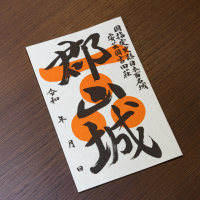 国指定史跡日本百名城
安芸国吉田荘
郡山城
令和 年 月 日